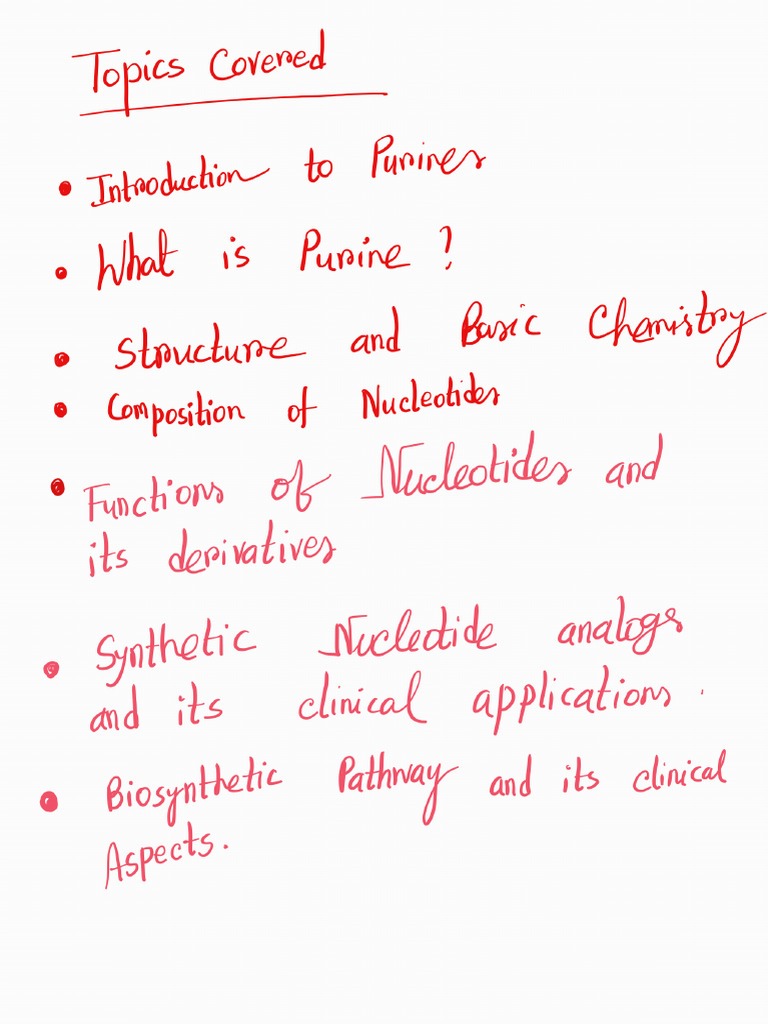 Topics Covered
• Introduction to Purines
• What is Purine ?
• Structure and Basic Chemistry
• Composition of Nucleotides
• Functions of Nucleotides and
its derivatives
• Synthetic Nucleotide analogs
and its clinical applications.
• Biosynthetic Pathway and its clinical
Aspects.